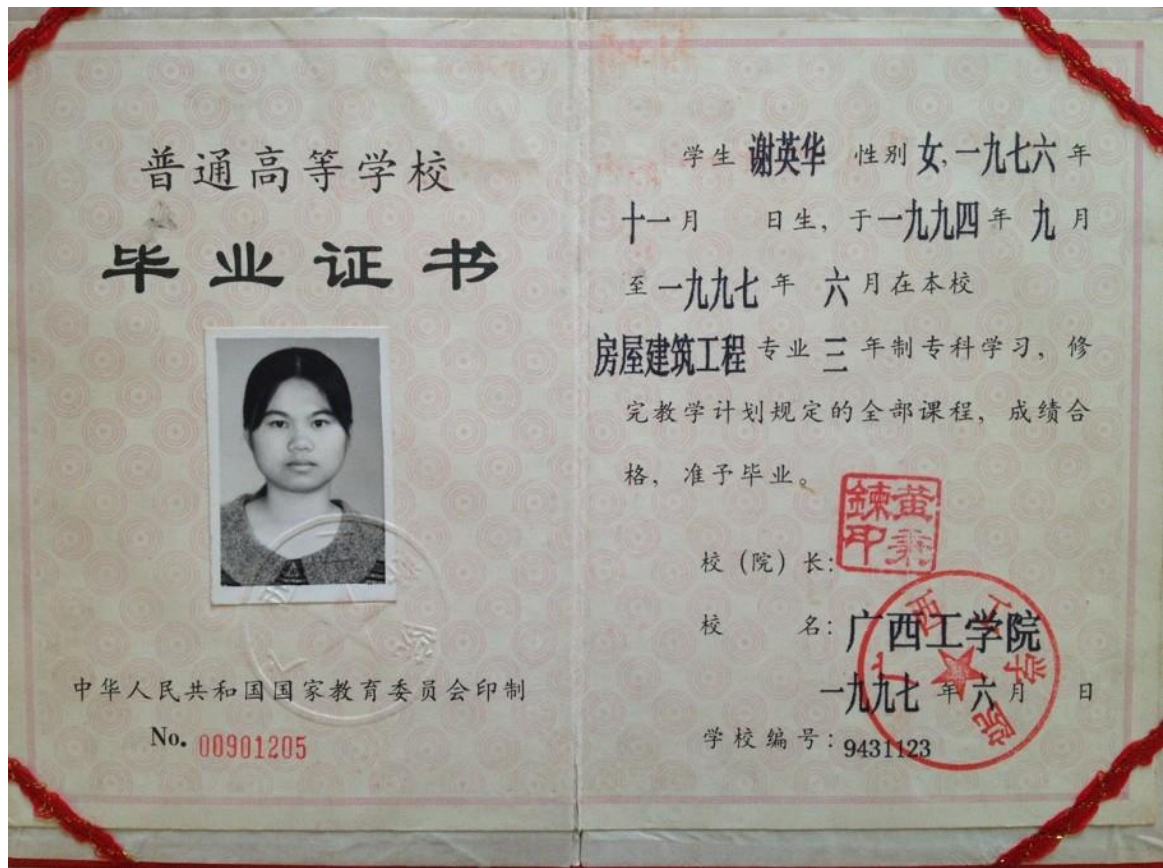 普通高等学校
毕业证书
中华人民共和国国家教育委员会印制
No. 00901205
学生 谢英华 性别 女, 一九七六 年
十一 月 日生, 于 一九九四 年 九 月
至 一九九七 年 六 月在本校
房屋建筑工程 专业 三 年制专科学习, 修
完教学计划规定的全部课程, 成绩合
格, 准予毕业。
校 (院) 长:
校 名: 广西工学院
一九九七 年 六 月 日
学校编号: 9431123
广西工学院